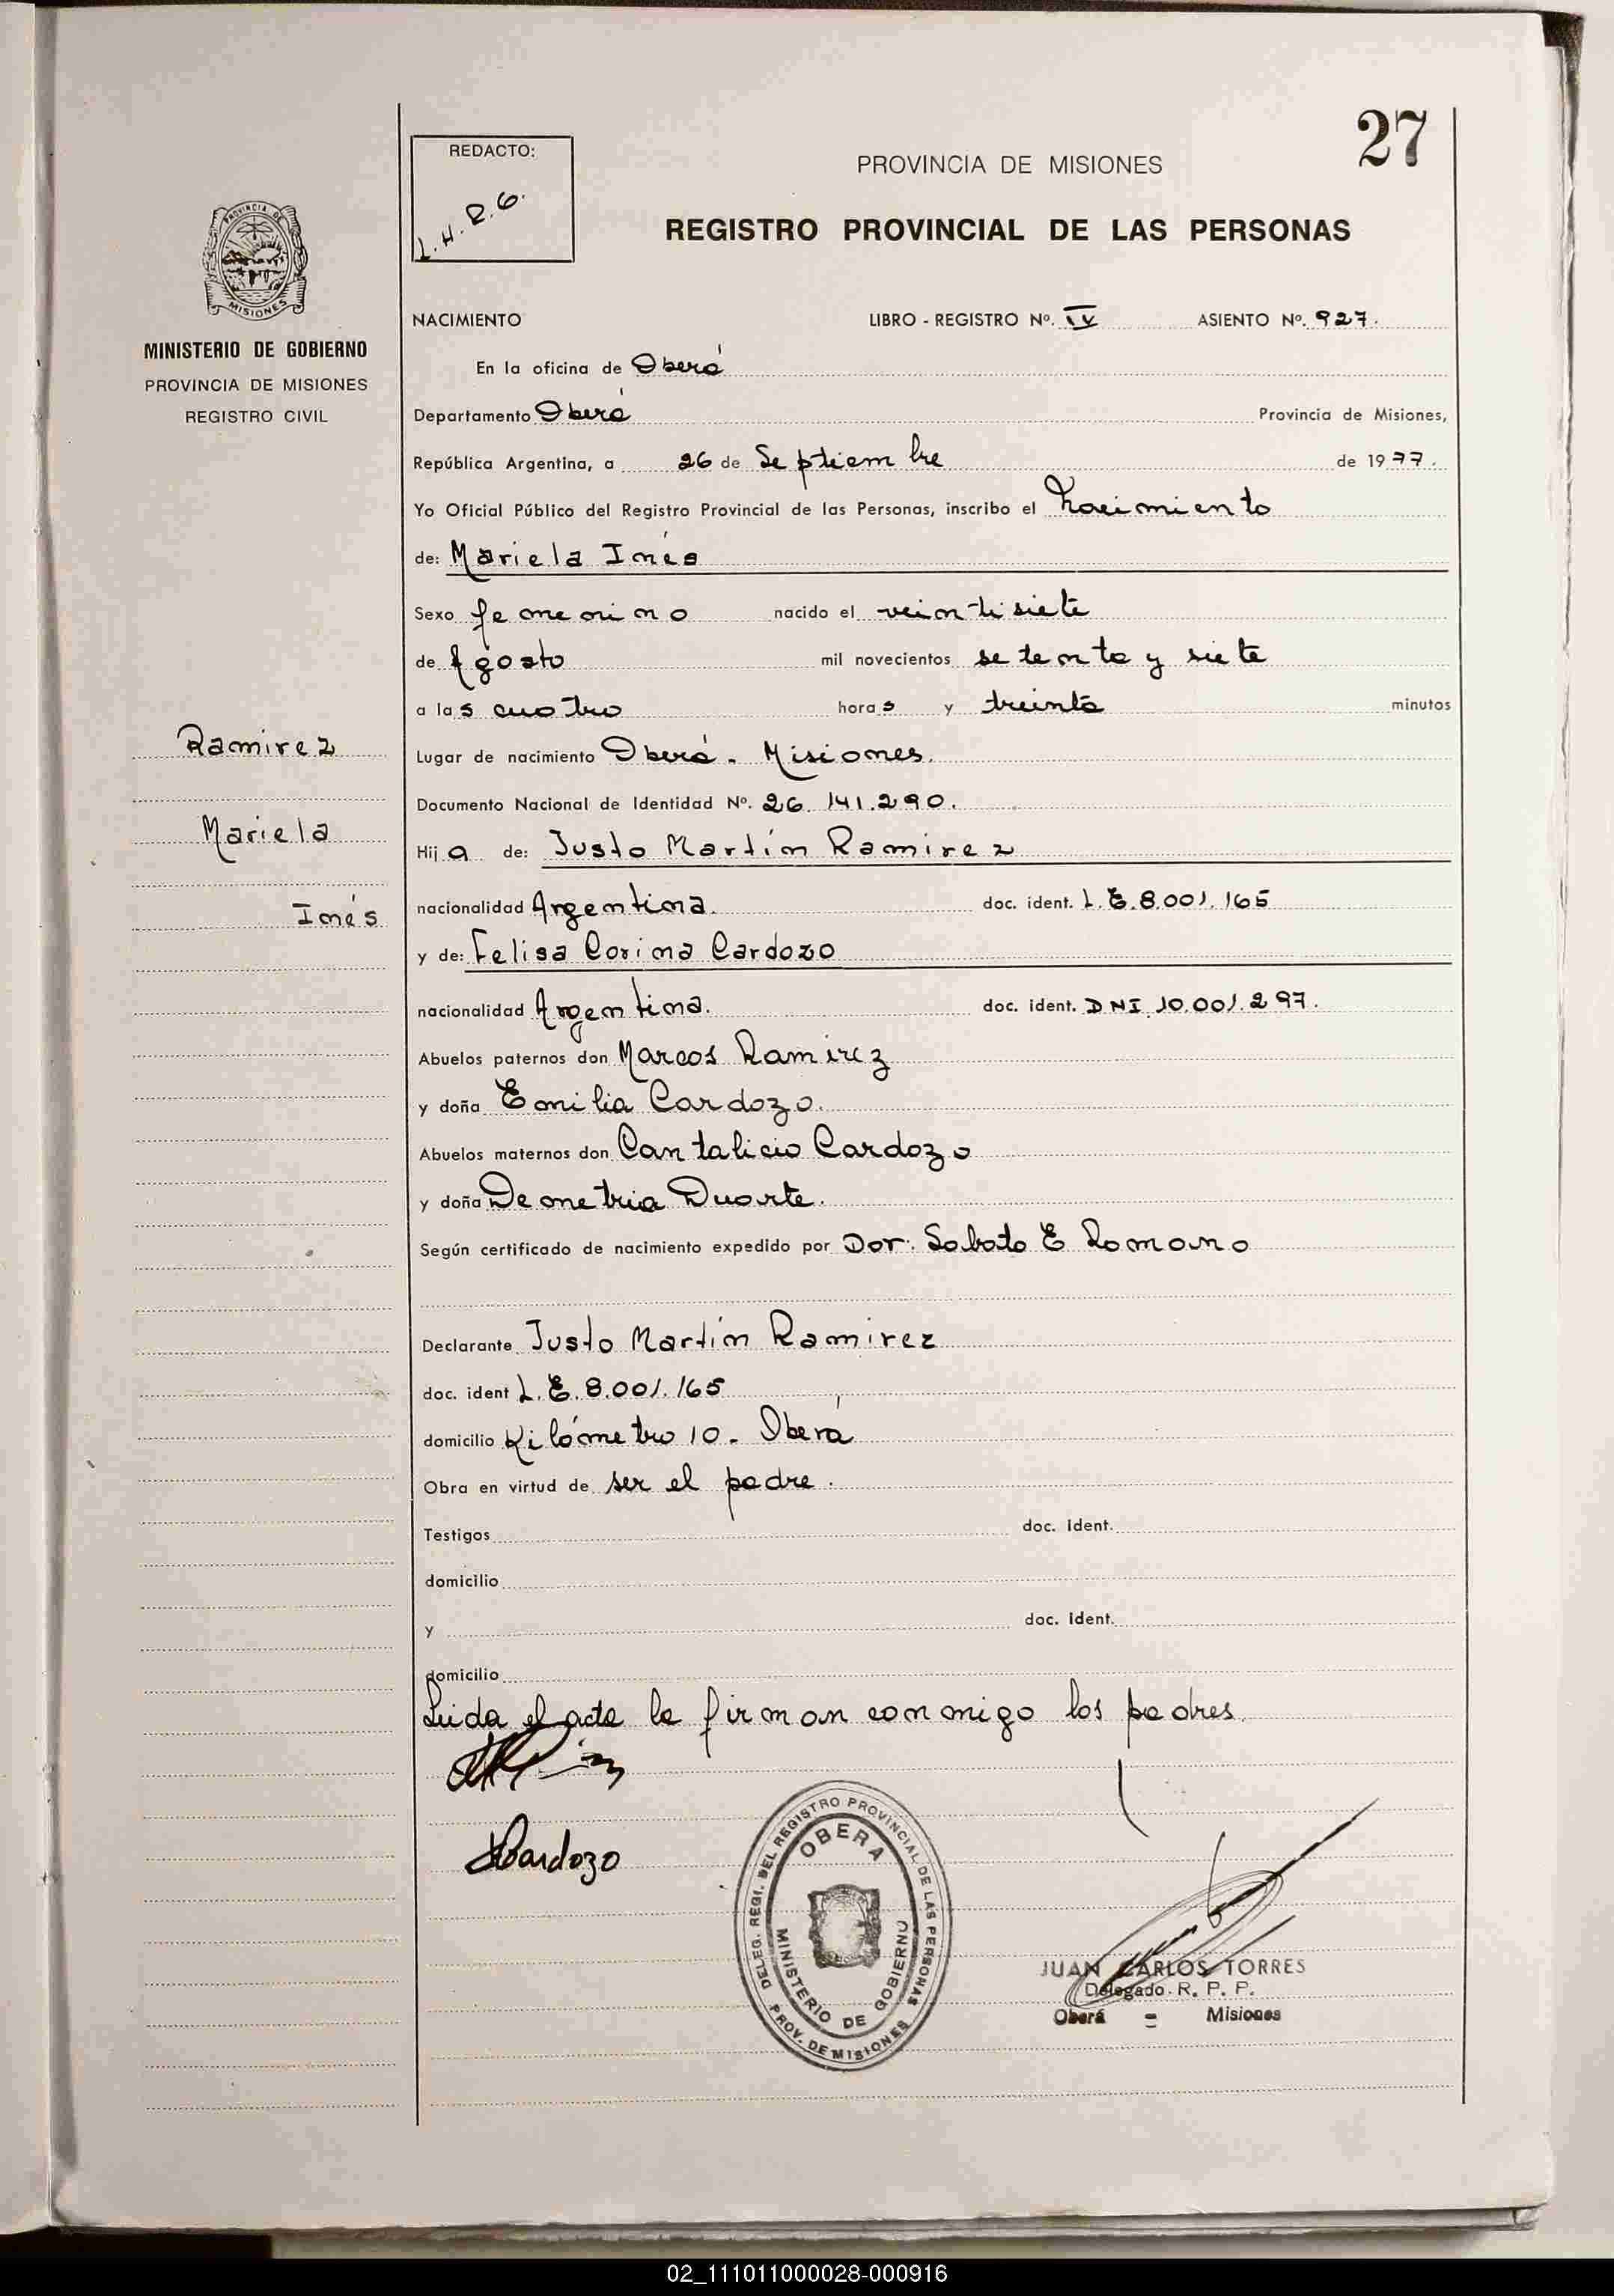 27
REDACTO:
I.H.R.G.
PROVINCIA DE MISIONES
REGISTRO PROVINCIAL DE LAS PERSONAS
PROVINCIA DE
MISIONES
MINISTERIO DE GOBIERNO
PROVINCIA DE MISIONES
REGISTRO CIVIL
Ramirez
Mariela
Inés
NACIMIENTO LIBRO - REGISTRO Nº. IV ASIENTO Nº. 927.
En la oficina de Oberá
Departamento Oberá Provincia de Misiones,
República Argentina, a 26 de Septiembre de 1977.
Yo Oficial Público del Registro Provincial de las Personas, inscribo el Nacimiento
de: Mariela Inés
Sexo femenino nacido el veintisiete
de Agosto mil novecientos setenta y siete
a las cuatro horas y treinta minutos
Lugar de nacimiento Oberá - Misiones.
Documento Nacional de Identidad Nº. 26.141.290.
Hija de: Justo Martín Ramirez
nacionalidad Argentina. doc. ident. L.E.8.001.165
y de: Felisa Corina Cardozo
nacionalidad Argentina. doc. ident. DNI 10.001.297.
Abuelos paternos don Marcos Ramirez
y doña Emilia Cardozo.
Abuelos maternos don Cantalicio Cardozo
y doña Demetria Duarte.
Según certificado de nacimiento expedido por Dor. Sabato E Romano
Declarante Justo Martín Ramirez
doc. ident L.E.8.001.165
domicilio Kilómetro 10 - Oberá
Obra en virtud de ser el padre.
Testigos doc. ident.
domicilio
y doc. ident.
domicilio
Leida el acta la firman conmigo los padres
Cardozo
DELEG. REGI. DEL REGISTRO PROVINCIAL DE LAS PERSONAS
OBERA
MINISTERIO DE GOBIERNO
PROV. DE MISIONES
JUAN CARLOS TORRES
Delegado R. P. P.
Oberá - Misiones
02_111011000028-000916